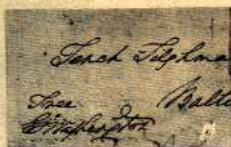 Tench Tilghma
Free Balti
G Washington